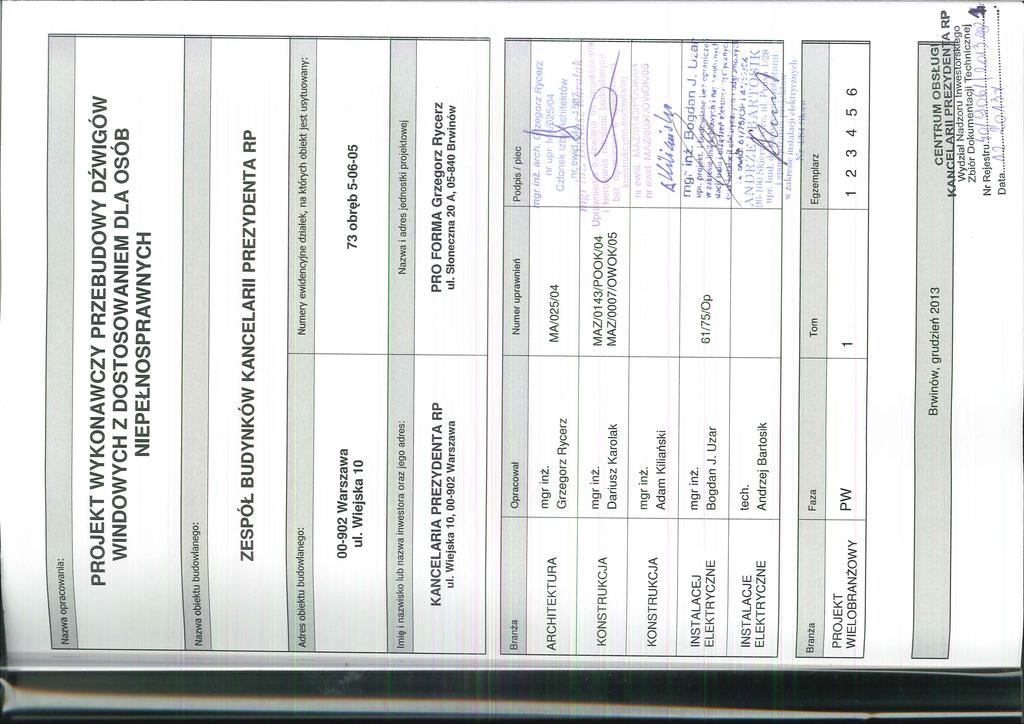 Nazwa opracowania:
PROJEKT WYKONAWCZY PRZEBUDOWY DŹWIGÓW
WINDOWYCH Z DOSTOSOWANIEM DLA OSÓB
NIEPEŁNOSPRAWNYCH
Nazwa obiektu budowlanego:
ZESPÓŁ BUDYNKÓW KANCELARII PREZYDENTA RP
Adres obiektu budowlanego:
Numery ewidencyjne działek, na których obiekt jest usytuowany:
00-902 Warszawa
ul. Wiejska 10
73 obręb 5-06-05
Imię i nazwisko lub nazwa inwestora oraz jego adres:
Nazwa i adres jednostki projektowej
KANCELARIA PREZYDENTA RP
ul. Wiejska 10, 00-902 Warszawa
PRO FORMA Grzegorz Rycerz
ul. Słoneczna 20 A, 05-840 Brwinów
Branża Opracował Numer uprawnień Podpis / piec
ARCHITEKTURA
mgr inż.
Grzegorz Rycerz
MA/025/04
mgr inż. arch. Grzegorz Rycerz
nr upr. MA/025/04
Członek Izby Architektów
KONSTRUKCJA
mgr inż.
Dariusz Karolak
MAZ/0143/POOK/04
MAZ/0007/OWOK/05
nr ewid. MAZ/0143/POOK/04
nr ewid. MAZ/0007/OWOK/05
KONSTRUKCJA
mgr inż.
Adam Kiliański
INSTALACEJ
ELEKTRYCZNE
mgr inż.
Bogdan J. Uzar
61/75/Op
mgr inż. Bogdan J. Uzar
INSTALACJE
ELEKTRYCZNE
tech.
Andrzej Bartosik
ANDRZEJ BARTOSIK
w zakresie instalacji elektrycznych
Branża Faza Tom Egzemplarz
PROJEKT
WIELOBRANŻOWY
PW
1
1 2 3 4 5 6
Brwinów, grudzień 2013
CENTRUM OBSŁUGI
KANCELARII PREZYDENTA RP
Wydział Nadzoru Inwestorskiego
Zbiór Dokumentacji Technicznej
Nr Rejestru
Data